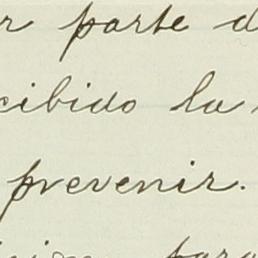 r parte d
cibido la
prevenir.
para